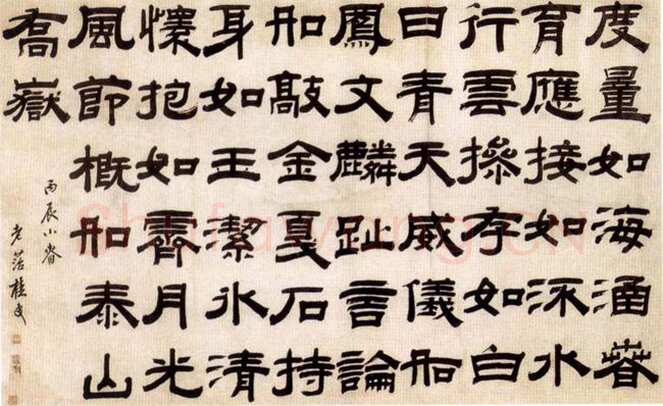 度量如海涵春
育應接如流水
行雲操存如白
日青天威儀如
鳳文麟趾言論
如敲金戛石持
身如玉潔氷清
懷抱如霽月光
風節概如泰山
喬嶽
丙辰小春
老菭桂馥